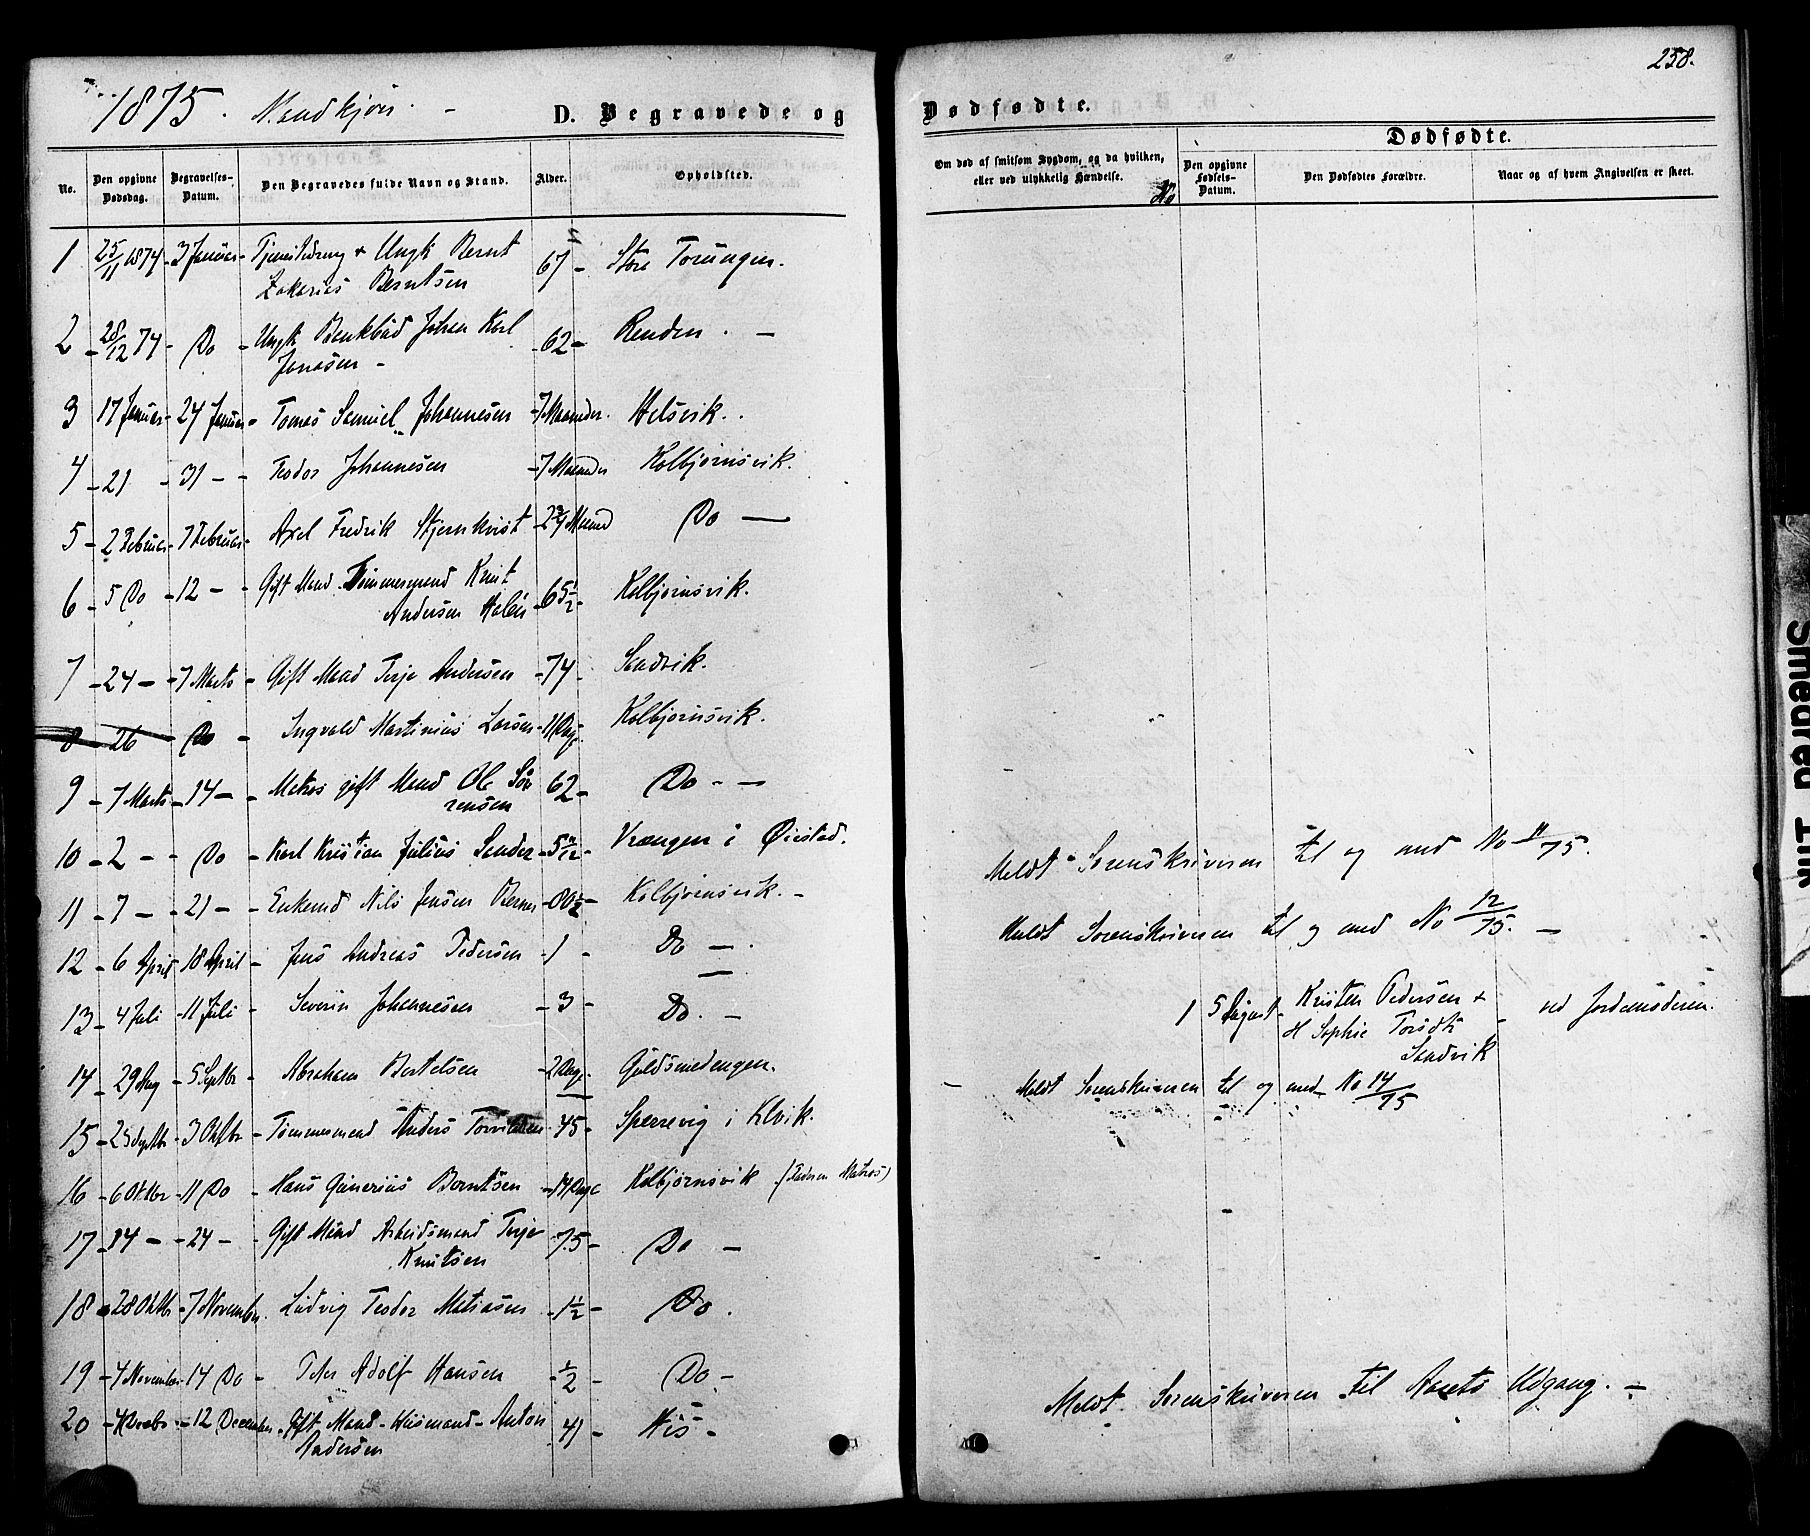 258.
1875. Mandkjön. -
D. Begravede og Dødfødte.
No.
Den opgivne Dødsdag.
Begravelses-Datum.
Den Begravedes fulde Navn og Stand.
Alder.
Opholdsted.
Om død af smitsom Sygdom, og da hvilken, eller ved ulykkelig Hændelse.
Dødfødte.
No
Den opgivne Fødsels-Datum.
Den Dødfødtes Forældre.
Naar og af hvem Angivelsen er skeet.
1 25/11 1874 - 3 Januar - Ungk Bernt 67 - Store Torungen.
Zakarias Berntsen
2 - 28/12 74 - Do - Ungk Johan Karl - 62 - Renden. -
Jonassen -
3 17 Januar - 24 Januar - Tomas Samuel Johannesen - 7 Maaneder. Helsvik.
4 - 21 - 31 - - Teodor Johannesen - 7 Maaneder Kolbjörnsvik.
5 - 2 Februar - 7 Februar - Axel Fredrik Stjernkvist - 2 3/4 Maaned Do -
6 - 5 Do - 12 - - Gift Mand Tömmermand Knut - 65 1/2 - Kolbjörnsvik.
Andersen
7 - 24 - - 7 Marts - Gift Mand Terje Andersen - 74 - Sandvik.
8 - 26 - Do - Ingvald Martinius Larsen - 11 Dage Kolbjörnsvik.
9 - 7 Marts - 14 - - Matros gift Mand Ole Sör 62 - Do - -
rensen
10 - 2 - - Do - Karl Kristian Julius Sander - 5 Vrængen i Öiestad.
Meldt Sorenskriveren til og med No 11/75.
11 - 7 - - 21 - - Enkemd Nils Jensen - 80 1/2 - Kolbjörnsvik. -
Meldt Sorenskriveren til og med No 12/75. -
12 - 6 April - 18 April - Jens Andreas Pedersen - 1 - Do - .
13 - 4 Juli - 11 Juli - Severin Johannesen - 3 - Do. -
1 5 August - Kristen Pedersen + - ved Jordemoderen.
H Sophie Torsdt
Sandvik
14 - 29 Aug - 5 Septbr - Abraham Bertelsen - 2 Dage - Guldsmedengen.
Meldt Sorenskriveren til og med No 14/75
15 - 25 Septbr - 3 Oktbr - Tömmermand Anders - 45 - Sperrevig i
16 - 6 Oktbr - 11 Do - Hans Gunerius Berntsen - 14 Dage Kolbjörnsvik (Faderen Matros)
17 - 14 - - 24 - - Gift Mand Arbeidsmand Terje - 75 - Do -
Knutsen
18 - 28 Oktbr - 7 November. Ludvig Teodor Matiasen - 1 1/2 - Do .
19 - 4 November - 14 Do - Peter Adolf Hansen - 1/2 - Do -
Meldt Sorenskriveren til Aarets Udgang. -
20 - 4 - 12 December - Gift Mand - Husmand - Anton 41 - His -
Andersen
Smedred Link